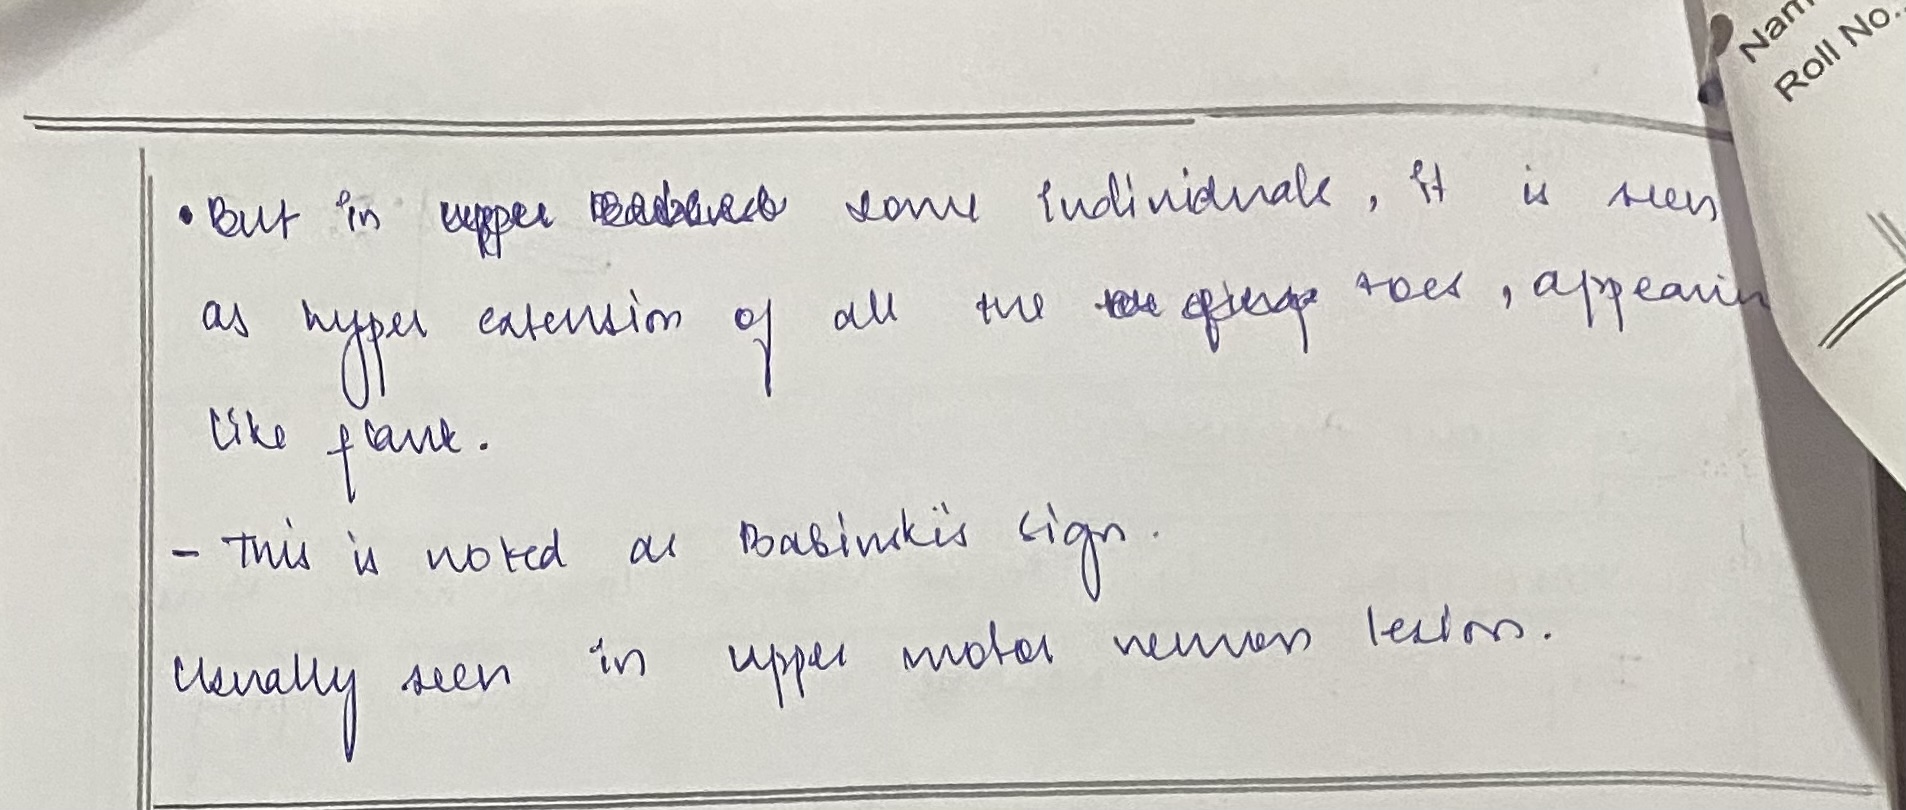 Nam
Roll No..
• But in upper some individuals, it is seen
as hyper extension of all the toes, appearin
like flank.
- This is noted as Babinski's sign.
Usually seen in upper motor neuron lesion.